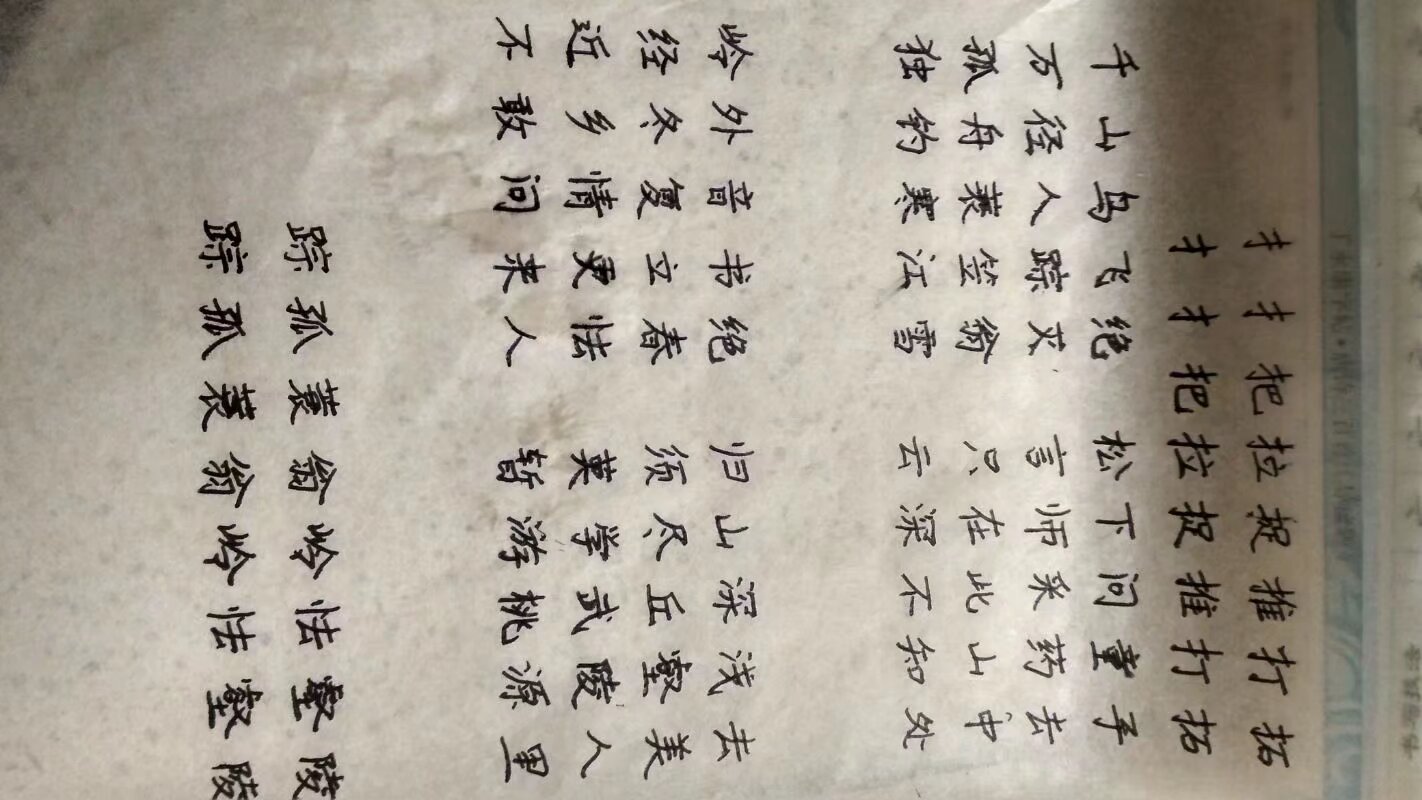 扌 扌 把 拉 捉 推 打 拓
扌 扌 把 拉 捉 推 打 拓
千山鸟飞绝 松下问童子
万径人踪灭 言师采药去
孤舟蓑笠翁 只在此山中
独钓寒江雪 云深不知处
岭外音书绝 归山深浅去
经冬复立春 须尽丘壑美
近乡情更怯 莫学武陵人
不敢问来人 暂游桃源里
踪孤蓑翁岭怯壑陵
踪孤蓑翁岭怯壑陵